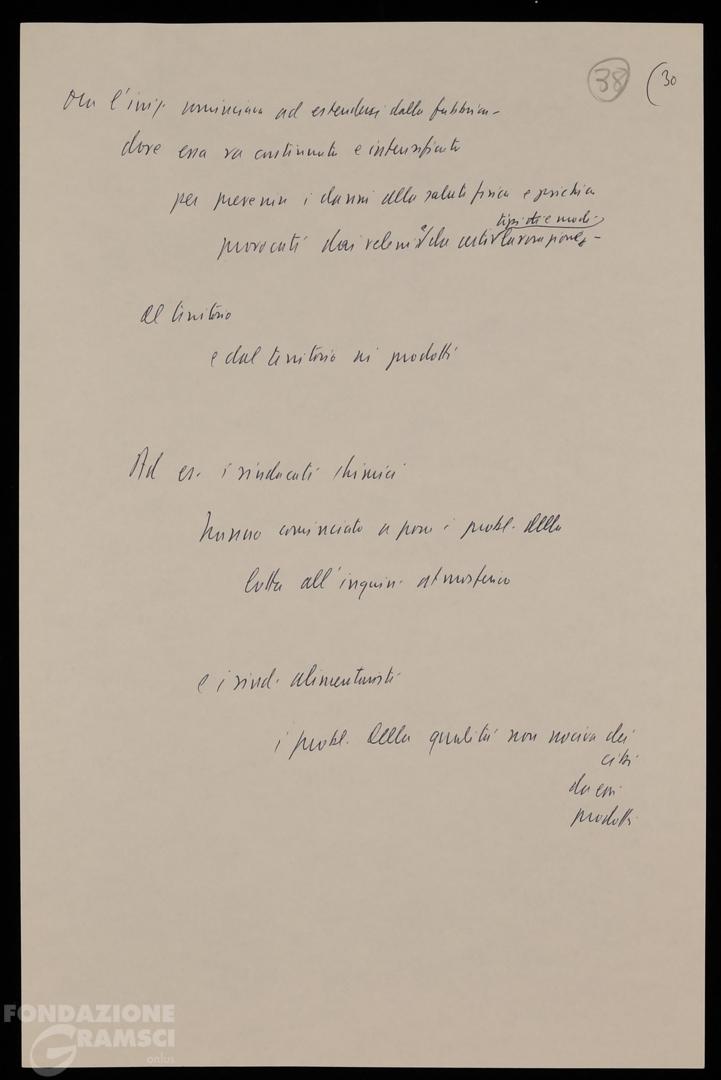 38 (30
Ora l'iniz. cominciava ad estendersi dalla fabbrica -
dove essa va continuata e intensificata
per prevenire i danni alla salute fisica e psichica
tipi di e modi
provocati dai veleni e/ da certi lavorazione -
al territorio
e dal territorio ai prodotti
Ad es. i sindacati chimici
hanno cominciato a porre i probl. della
lotta all'inquin. atmosferico
e i sind. alimentaristi
i probl. della qualità non nociva dei
cibi
da essi
prodotti
FONDAZIONE
GRAMSCI
onlus